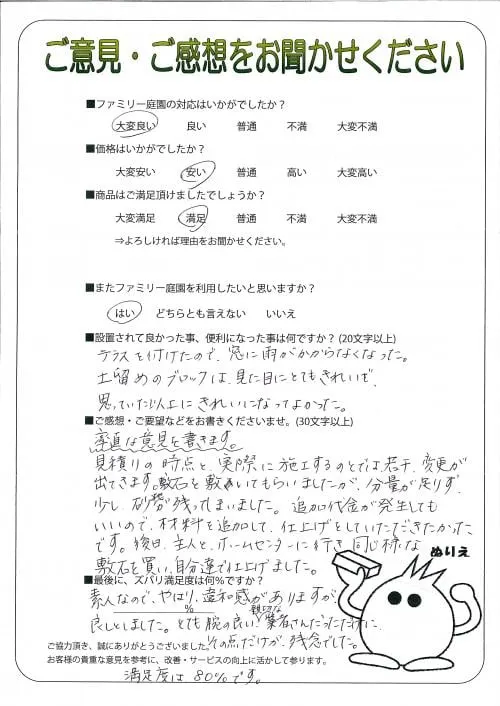 ご意見・ご感想をお聞かせください
■ファミリー庭園の対応はいかがでしたか？
大変良い 良い 普通 不満 大変不満
■価格はいかがでしたか？
大変安い 安い 普通 高い 大変高い
■商品はご満足頂けましたでしょうか？
大変満足 満足 普通 不満 大変不満
⇒よろしければ理由をお聞かせください。
■またファミリー庭園を利用したいと思いますか？
はい どちらとも言えない いいえ
■設置されて良かった事、便利になった事は何ですか？(20文字以上)
テラスを付けたので、窓に雨がかからなくなった。
土留めのブロックは、見た目にとてもきれいで、
思っていた以上にきれいになってよかった。
■ご感想・ご要望などをお書きくださいませ。(30文字以上)
率直な意見を書きます。
見積りの時点と、実際に施工するのとでは、若干、変更が
出てきます。敷石を敷いてもらいましたが、分量が足りず、
少し、砂利が残ってしまいました。追加代金が発生しても
いいので、材料を追加して、仕上げをしていただきたかった
です。後日、主人と、ホームセンターに行き、同じ様な
敷石を買い、自分達で仕上げました。
ぬりえ
■最後に、ズバリ満足度は何％ですか？
素人なので、やはり、違和感がありますが、
％
良しとしました。とても腕の良い、親切な業者さんだっただけに、
その点だけが、残念でした。
ご協力頂き、誠にありがとうございました。
お客様の貴重な意見を参考に、改善・サービスの向上に活かして参ります。
満足度は80％です。